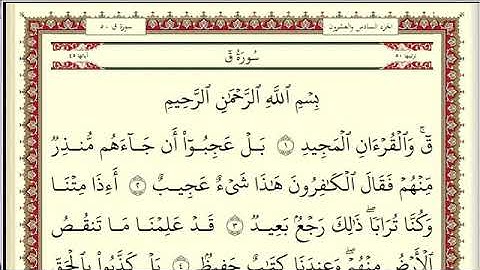 سورة ق - ٥٠
الجزء السادس والعشرون
آياتها ٤٥
سُورَةُ قٓ
ترتيبها ٥٠
بِسْمِ اللَّهِ الرَّحْمَٰنِ الرَّحِيمِ
قٓ ۚ وَالْقُرْءَانِ الْمَجِيدِ ١ بَلْ عَجِبُوٓا۟ أَن جَآءَهُم مُّنذِرٌ
مِّنْهُمْ فَقَالَ الْكَٰفِرُونَ هَٰذَا شَىْءٌ عَجِيبٌ ٢ أَءِذَا مِتْنَا
وَكُنَّا تُرَابًا ۖ ذَٰلِكَ رَجْعٌۢ بَعِيدٌ ٣ قَدْ عَلِمْنَا مَا تَنقُصُ
الْأَرْضُ مِنْهُمْ ۖ وَعِندَنَا كِتَٰبٌ حَفِيظٌۢ ٤ بَلْ كَذَّبُوا۟ بِالْحَقِّ